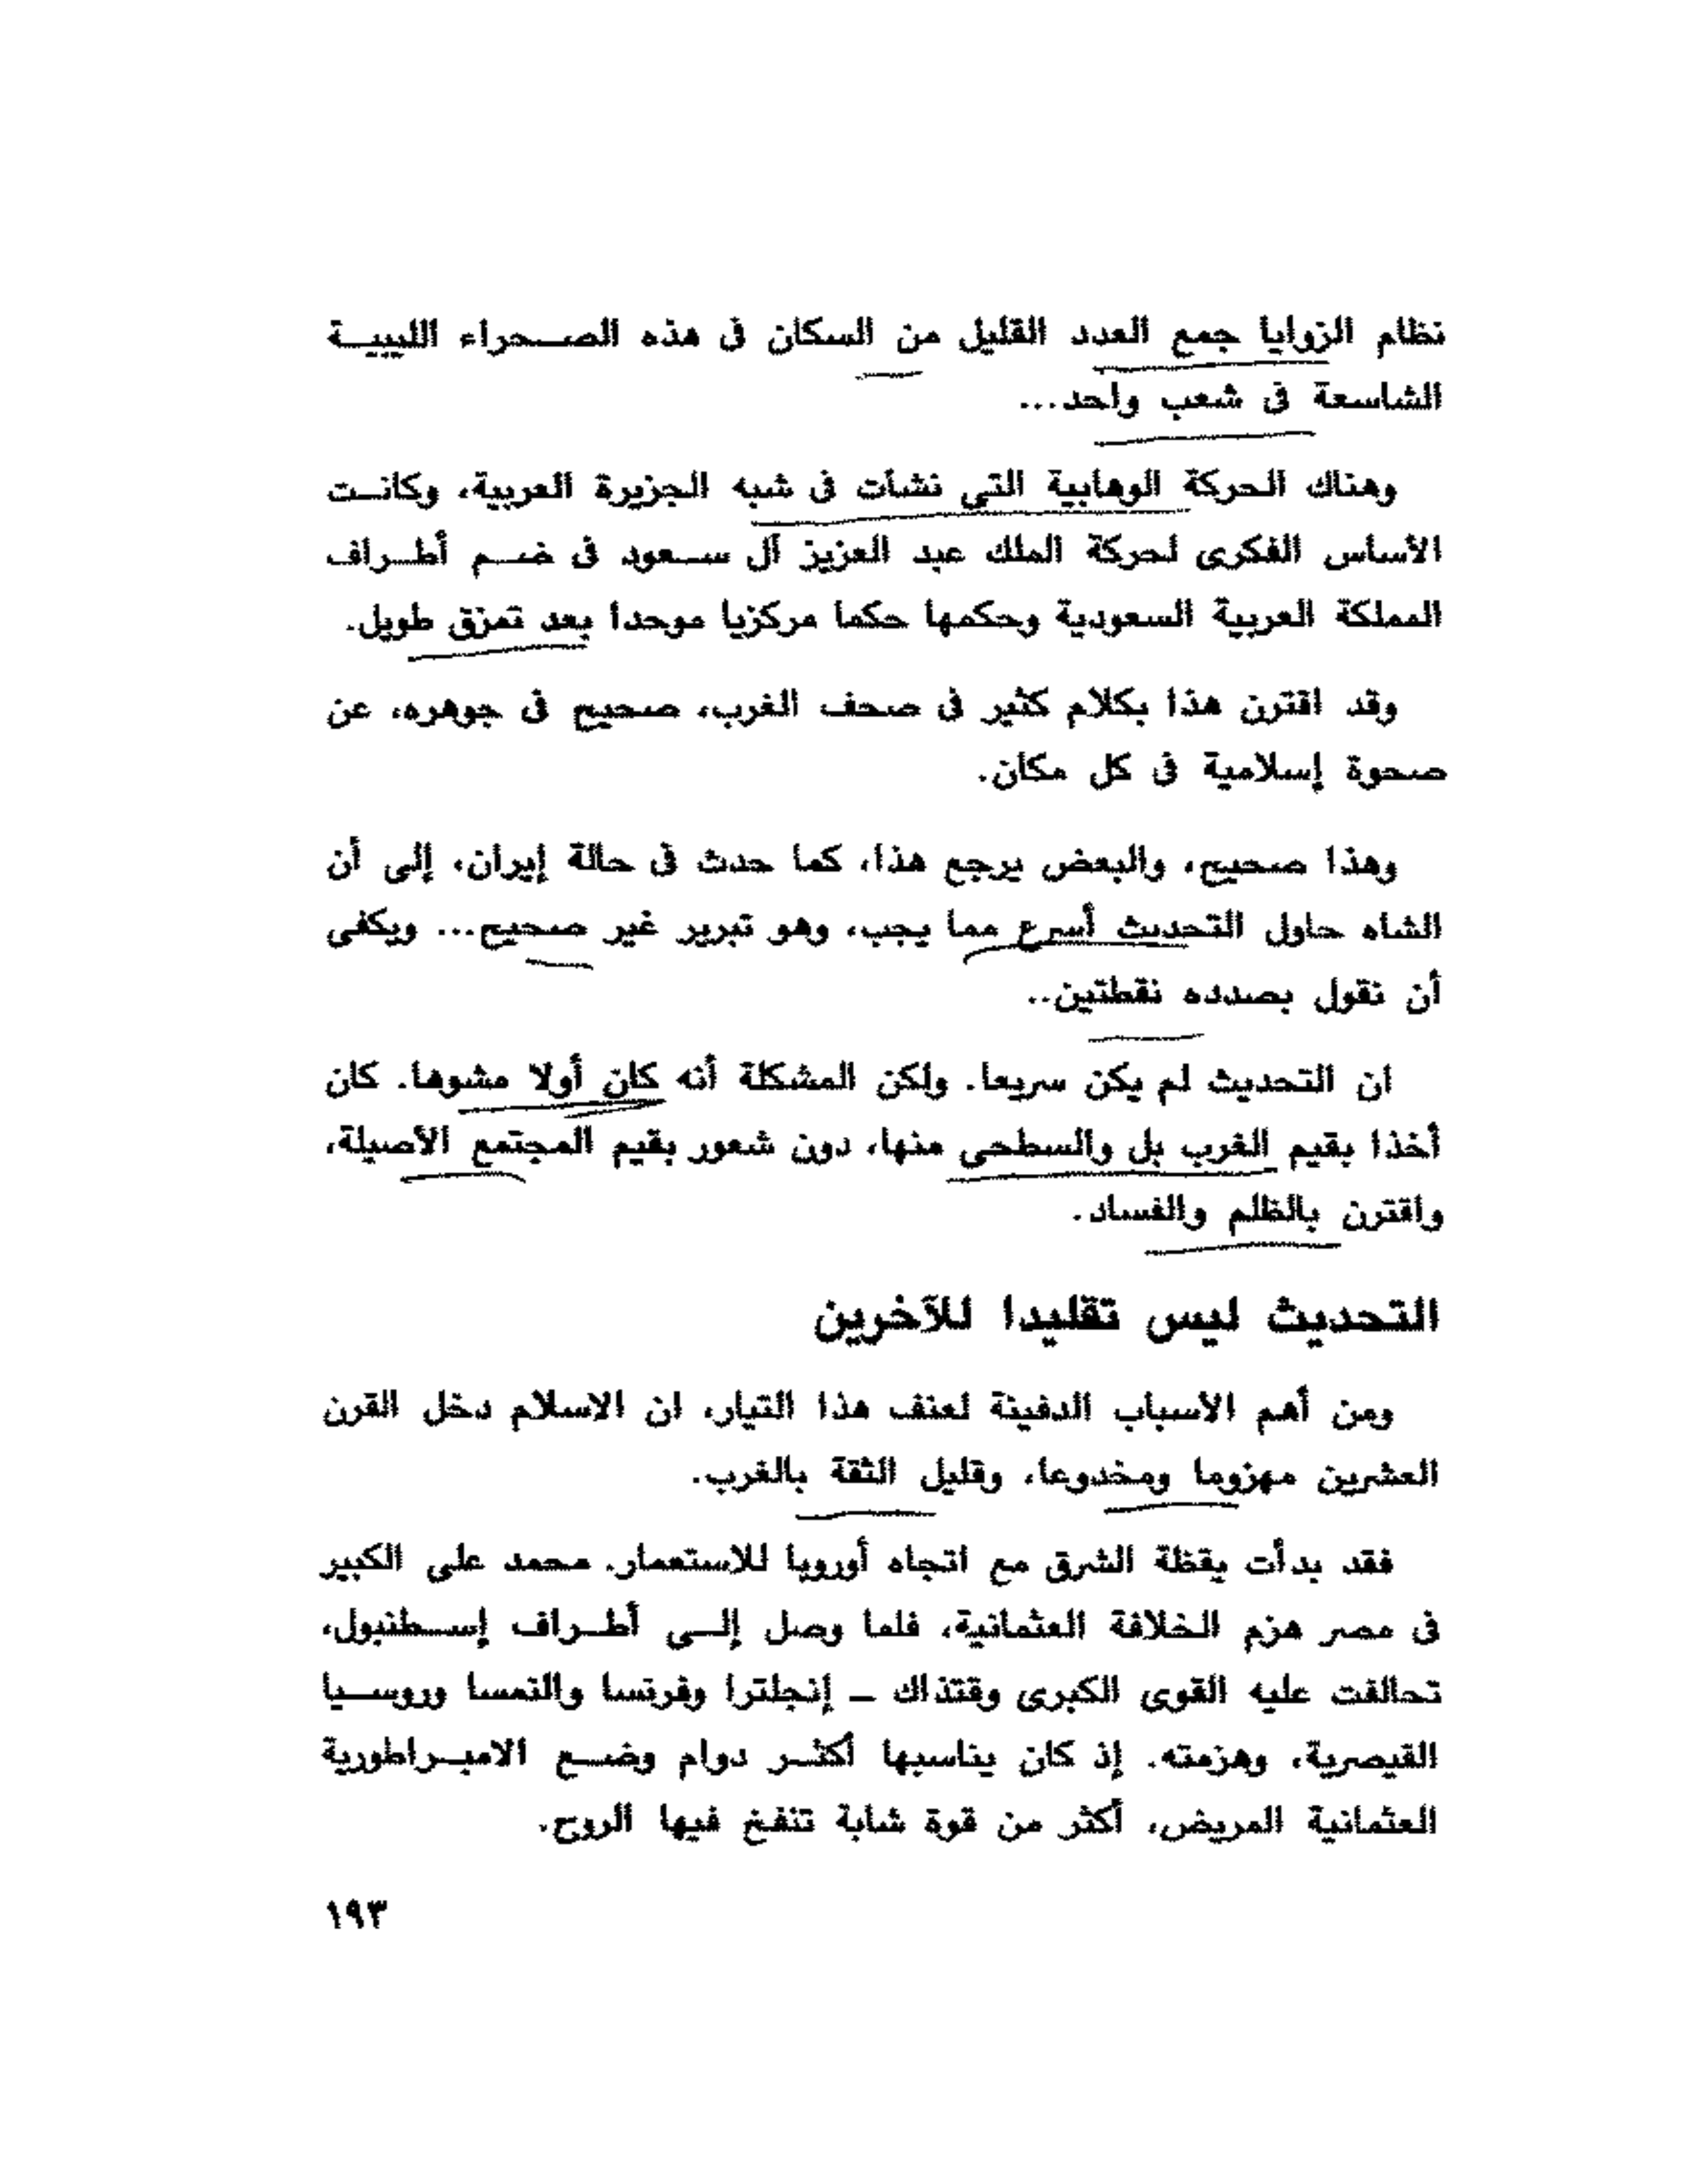 نظام الزوايا جمع العدد القليل من السكان فى هذه الصحراء الليبية
الشاسعة فى شعب واحد...
وهناك الحركة الوهابية التي نشأت فى شبه الجزيرة العربية، وكانت
الأساس الفكرى لحركة الملك عبد العزيز آل سعود فى ضم أطراف
المملكة العربية السعودية وحكمها حكما مركزيا موحدا بعد تمزق طويل.
وقد اقترن هذا بكلام كثير فى صحف الغرب، صحيح فى جوهره، عن
صحوة إسلامية فى كل مكان.
وهذا صحيح، والبعض يرجع هذا، كما حدث فى حالة إيران، إلى أن
الشاه حاول التحديث أسرع مما يجب، وهو تبرير غير صحيح... ويكفى
أن نقول بصدده نقطتين..
ان التحديث لم يكن سريعا. ولكن المشكلة أنه كان أولا مشوها. كان
أخذا بقيم الغرب بل والسطحى منها، دون شعور بقيم المجتمع الأصيلة،
واقترن بالظلم والفساد.
التحديث ليس تقليدا للآخرين
ومن أهم الأسباب الدفينة لعنف هذا التيار، ان الاسلام دخل القرن
العشرين مهزوما ومخدوعا، وقليل الثقة بالغرب.
فقد بدأت يقظة الشرق مع اتجاه أوروبا للاستعمار. محمد على الكبير
فى مصر هزم الخلافة العثمانية، فلما وصل إلى أطراف إسطنبول،
تحالفت عليه القوى الكبرى وقتذاك – إنجلترا وفرنسا والنمسا وروسيا
القيصرية، وهزمته. إذ كان يناسبها أكثر دوام وضع الامبراطورية
العثمانية المريض، أكثر من قوة شابة تنفخ فيها الروح.
١٩٣